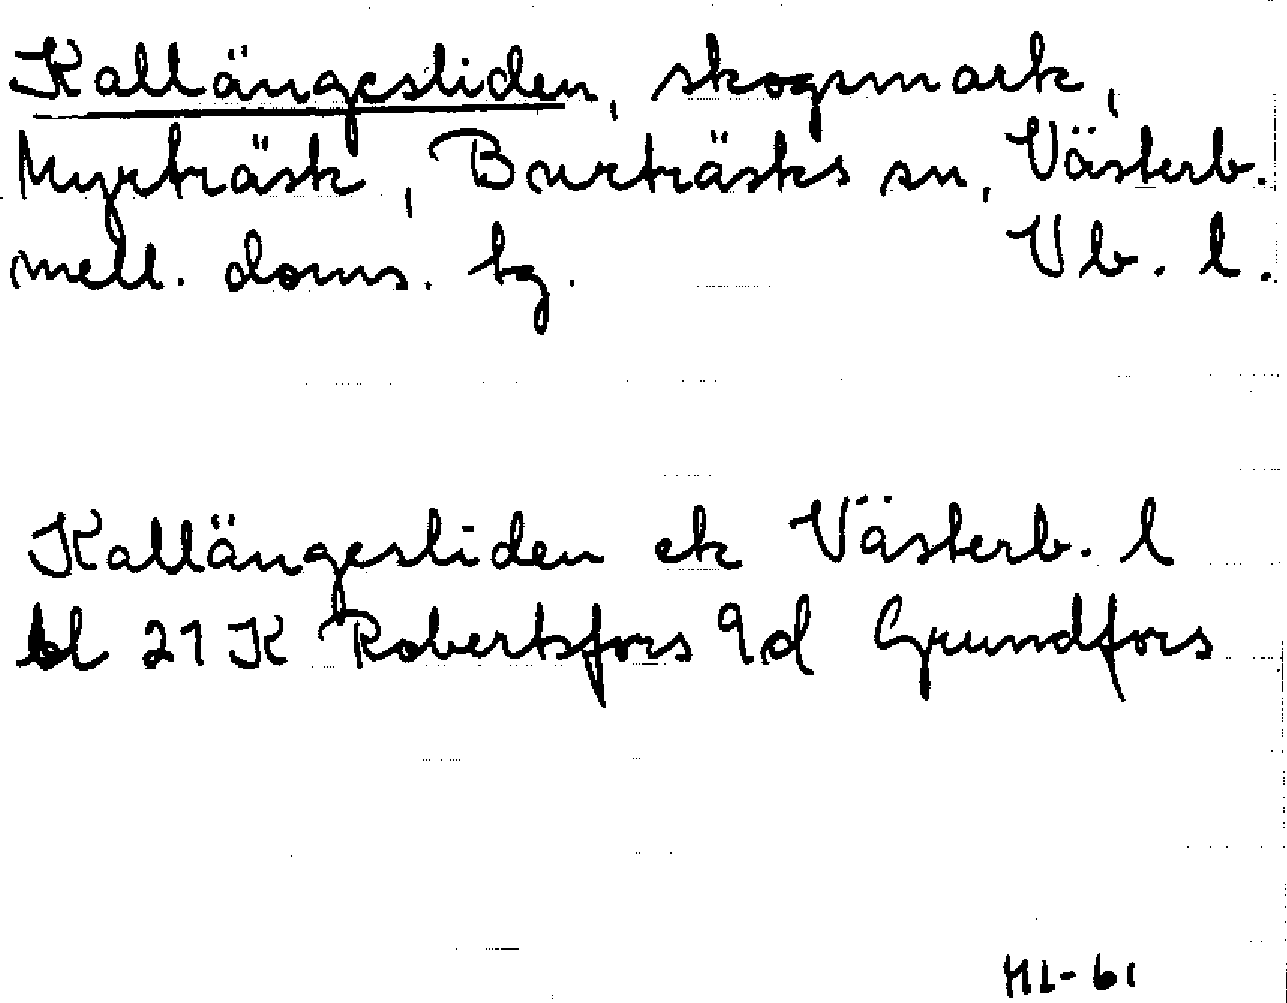 Kallängesliden, skogsmark,
Myrträsk, Burträsks sn, Västerb.
mell. doms. tg. Vb. l.
Kallängesliden ek Västerb. l
bl 21 K Robertsfors 9d Grundfors
ML-61